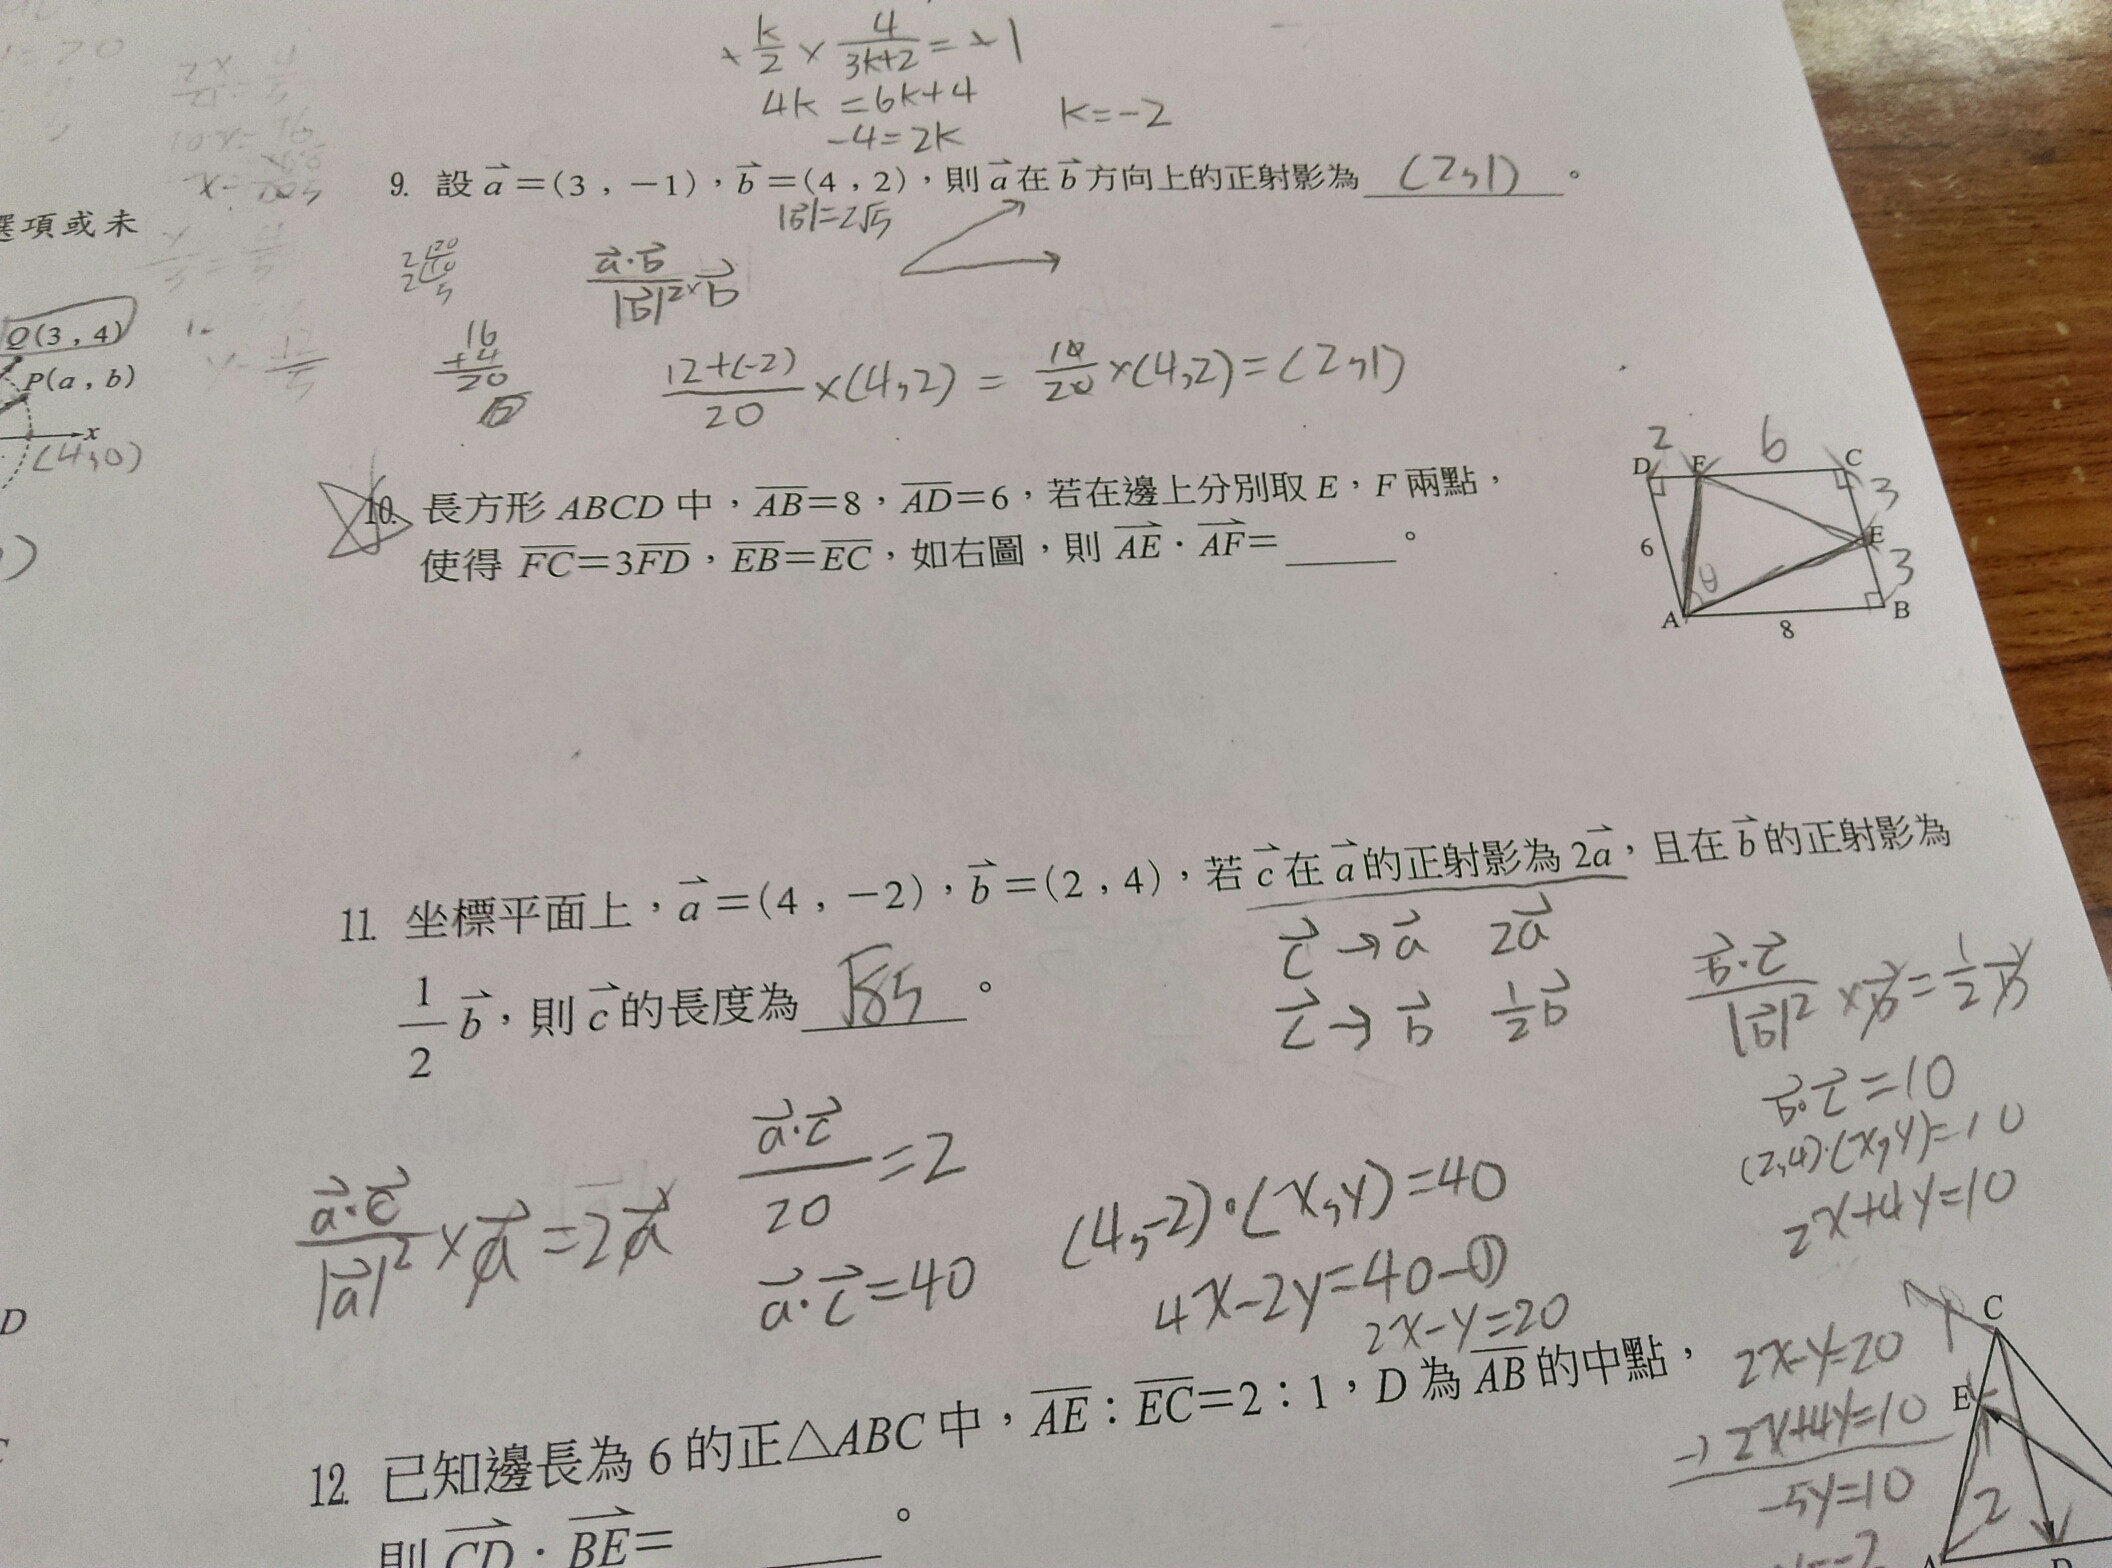 + k/2 × 4/(3k+2) = +1
4k = 6k+4
-4 = 2k
k = -2
9. 設 a⃗=(3,-1),b⃗=(4,2),則 a⃗ 在 b⃗ 方向上的正射影為 (2,1)。
|b⃗|=2√5
a⃗·b⃗/|b⃗|² × b⃗
16
+4
20
(12+(-2))/20 ×(4,2) = 10/20 ×(4,2)=(2,1)
選項或未
Q(3,4)
P(a,b)
x
(4,0)
10. 長方形 ABCD 中,AB=8,AD=6,若在邊上分別取 E,F 兩點,
使得 FC=3FD,EB=EC,如右圖,則 AE⃗·AF⃗=____。
2 6
D F C
3
E
6 θ 3
A 8 B
11. 坐標平面上,a⃗=(4,-2),b⃗=(2,4),若 c⃗ 在 a⃗ 的正射影為 2a⃗,且在 b⃗ 的正射影為
1/2 b⃗,則 c⃗ 的長度為 √85。
c⃗ → a⃗ 2a⃗
c⃗ → b⃗ 1/2 b⃗
b⃗·c⃗/|b⃗|² × b⃗ = 1/2 b⃗
b⃗·c⃗=10
(2,4)·(x,y)=10
2x+4y=10
a⃗·c⃗/|a⃗|² × a⃗ = 2a⃗
a⃗·c⃗/20 = 2
a⃗·c⃗=40
(4,-2)·(x,y)=40
4x-2y=40-①
2x-y=20
2x-y=20
-) 2x+4y=10
-5y=10
12. 已知邊長為 6 的正△ABC 中,AE:EC=2:1,D 為 AB 的中點,
則 CD⃗·BE⃗=____。
C
E
2
D